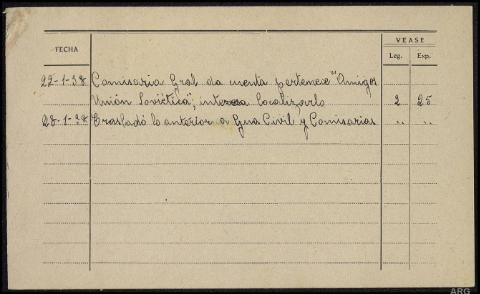 VEASE
FECHA
Leg. Exp.
22-1-38 Comisaria Gral da cuenta pertenece "Amigos
Unión Soviética", interesa localizarlo 2 25
28-1-38 Trasladó lo anterior a Gua Civil y Comisarias " "
ARG